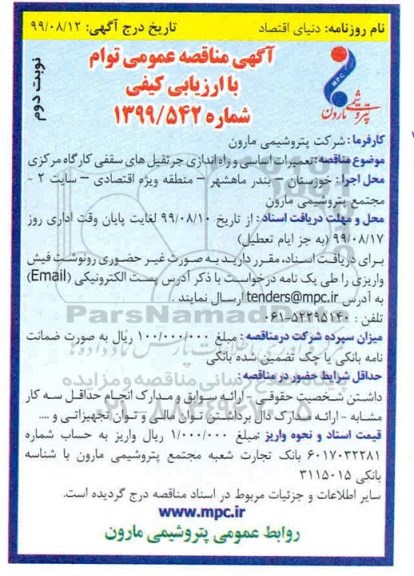 نام روزنامه: دنیای اقتصاد
تاریخ درج آگهی: ۹۹/۰۸/۱۲
آگهی مناقصه عمومی توام
با ارزیابی کیفی
شماره ۱۳۹۹/۵۴۲
نوبت دوم
MPC
پتروشیمی مارون
کارفرما: شرکت پتروشیمی مارون
موضوع مناقصه: تعمیرات اساسی و راه اندازی جرثقیل های سقفی کارگاه مرکزی
محل اجرا: خوزستان – بندر ماهشهر – منطقه ویژه اقتصادی – سایت ۲ -
مجتمع پتروشیمی مارون
محل و مهلت دریافت اسناد: از تاریخ ۹۹/۰۸/۱۰ لغایت پایان وقت اداری روز
۹۹/۰۸/۱۷ (به جز ایام تعطیل)
برای دریافت اسناد، مقرر دارید به صورت غیر حضوری رونوشت فیش
واریزی را طی یک نامه درخواست با ذکر آدرس پست الکترونیکی (Email)
به آدرس tenders@mpc.ir ارسال نمایند.
تلفن: ۵۲۲۹۵۱۴۰-۰۶۱
میزان سپرده شرکت در مناقصه: مبلغ ۱۰۰/۰۰۰/۰۰۰ ریال به صورت ضمانت
نامه بانکی یا چک تضمین شده بانکی
حداقل شرایط حضور در مناقصه:
داشتن شخصیت حقوقی - ارائه سوابق و مدارک انجام حداقل سه کار
مشابه - ارائه مدارک دال بر داشتن توان مالی و توان تجهیزاتی و ....
قیمت اسناد و نحوه واریز: مبلغ ۱/۰۰۰/۰۰۰ ریال واریز به حساب شماره
۶۰۱۷۰۳۲۲۸۱ بانک تجارت شعبه مجتمع پتروشیمی مارون با شناسه
بانکی ۳۱۱۵۰۱۵
سایر اطلاعات و جزئیات مربوط در اسناد مناقصه درج گردیده است.
www.mpc.ir
روابط عمومی پتروشیمی مارون
ParsNamadData